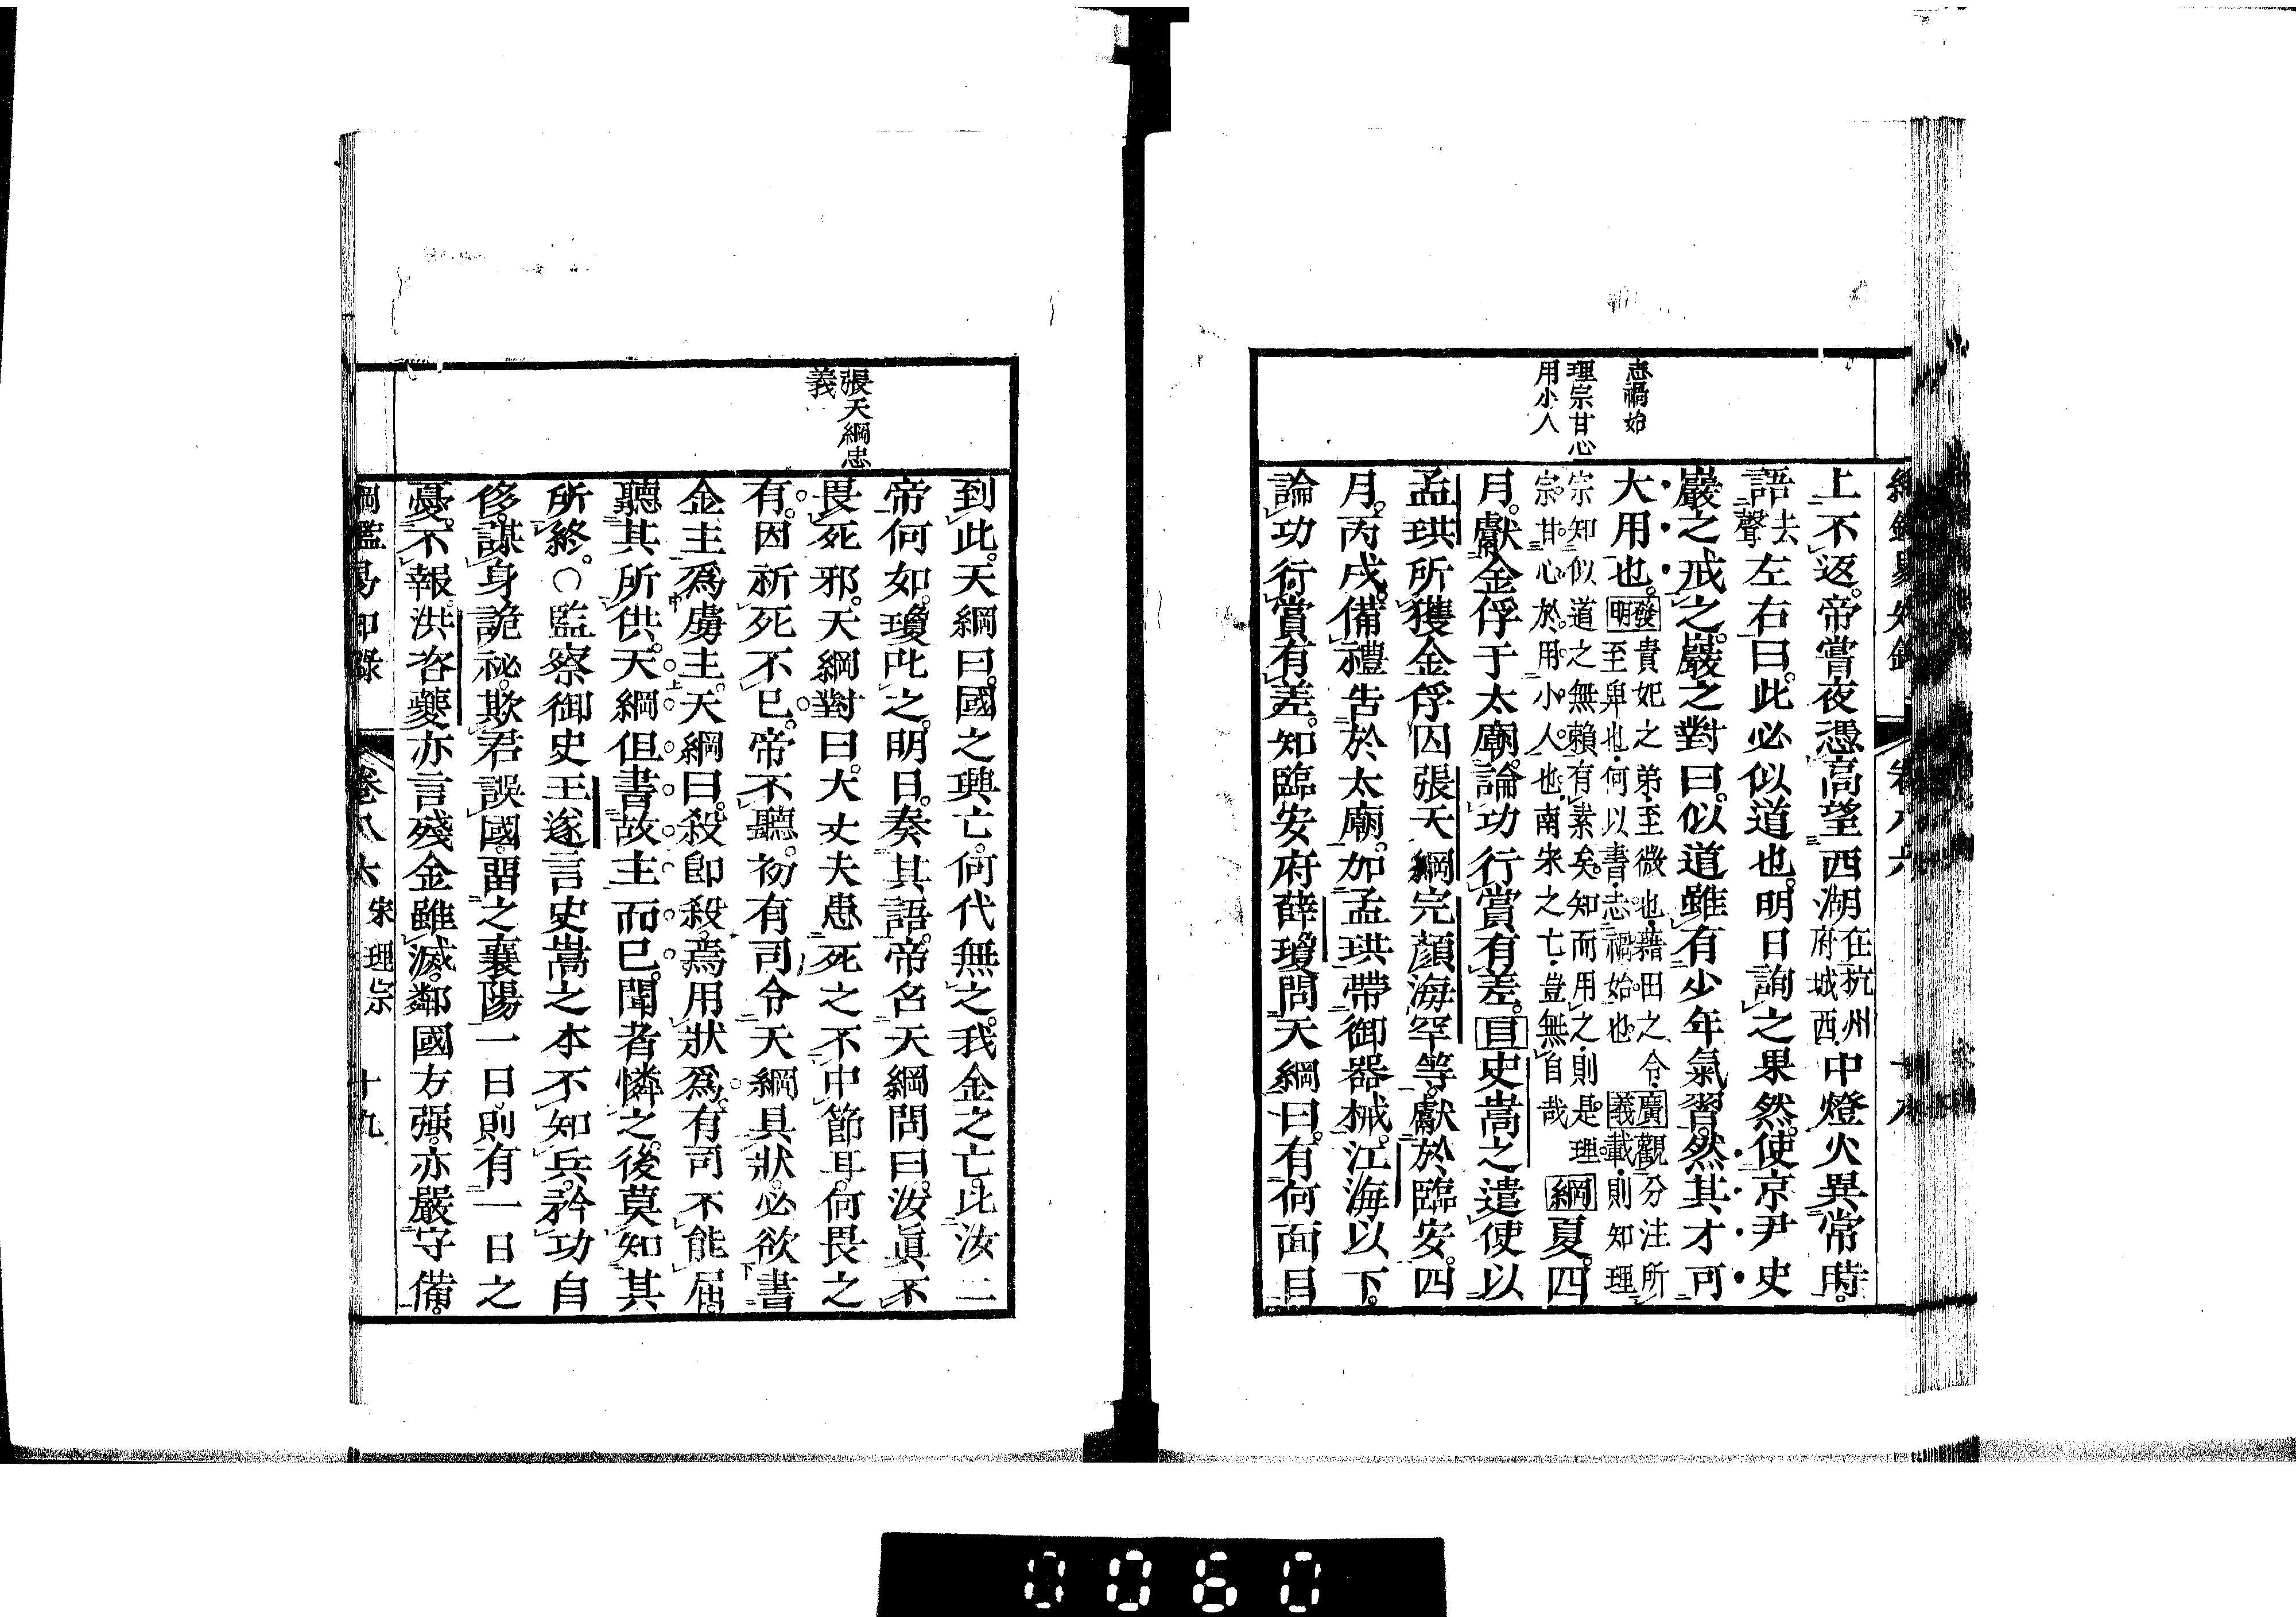 志禍始
理宗甘心
用小人
上不返。帝嘗夜憑高望西湖在杭州府城西中燈火異常時。
語去聲左右曰。此必似道也。明日詢之果然。使京尹史
巖之戒之。巖之對曰。似道雖有少年氣習。然其才可
大用也。發明貴妃之弟至微也。藉田之令至卑也。何以書。志禍始也。廣義觀分注所載。則知理
宗知似道之無賴有素矣。知而用之。則是理宗甘心於用小人也。南宋之亡。豈無自哉綱夏。四
月。獻金俘于太廟。論功行賞有差。目史嵩之遣使以
孟珙所獲金俘囚張天綱完顏海罕等。獻於臨安。四
月。丙戌。備禮告於太廟。加孟珙帶御器械。江海以下。
論功行賞有差。知臨安府薛瓊問天綱曰。有何面目
張天綱忠
義
到此。天綱曰。國之興亡。何代無之。我金之亡。此汝二
帝何如。瓊叱之。明日。奏其語。帝召天綱問曰。汝眞不
畏死邪。天綱對曰。大丈夫患死之不中節耳。何畏之
有。因祈死不已。帝不聽。初有司令天綱具狀。必欲書
金主爲虜主。天綱曰。殺卽殺。焉用狀爲。有司不能屈。
聽其所供。天綱但書故主而已。聞者憐之。後莫知其
所終。○監察御史王遂言史嵩之本不知兵。矜功自
侈。謀身詭祕。欺君誤國。畱之襄陽一日。則有一日之
憂。不報洪咨夔亦言殘金雖滅。鄰國方强。亦嚴守備。
綱鑑易知錄 卷八六 宋理宗 十九
0060